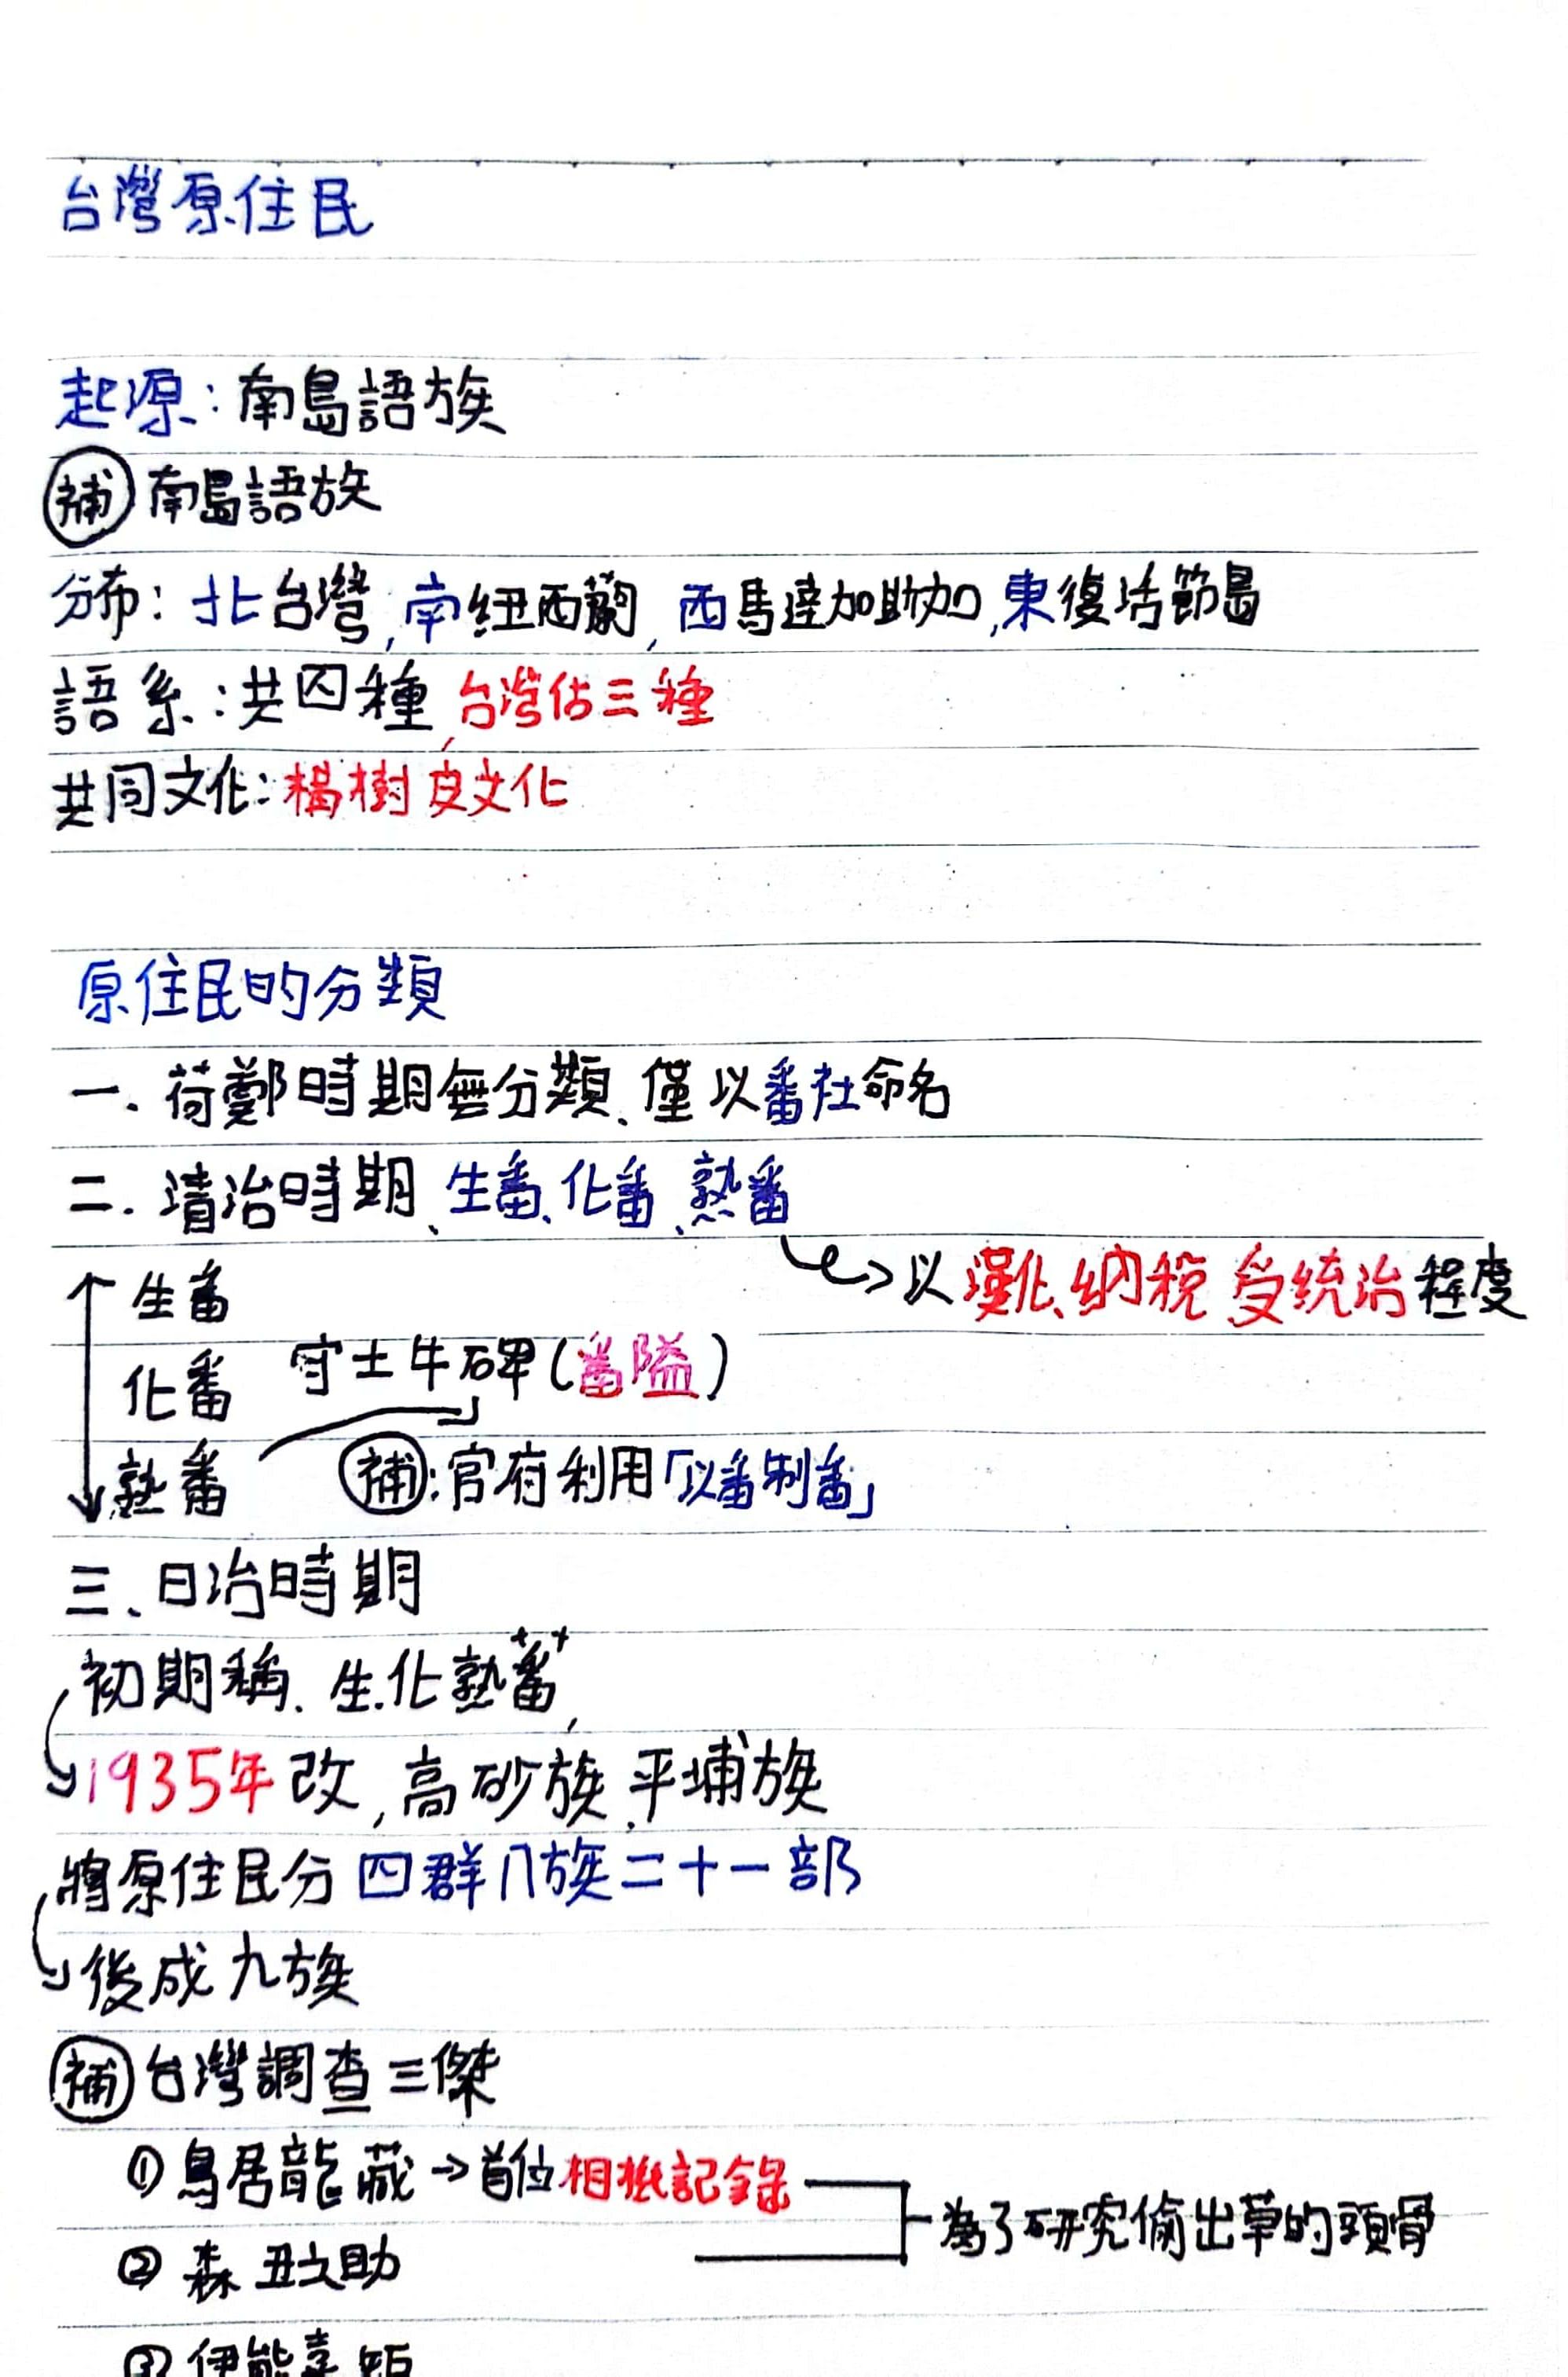 台灣原住民
起源：南島語族
補 南島語族
分布：北台灣,南紐西蘭,西馬達加斯加,東復活節島
語系：共四種,台灣佔三種
共同文化：楮樹皮文化
原住民的分類
一、荷鄭時期無分類、僅以番社命名
二、清治時期、生番、化番、熟番
→以漢化、納稅 受統治程度
生番
化番 守土牛碑(番隘)
熟番 補：官府利用「以番制番」
三、日治時期
初期稱、生.化熟蕃,
1935年改,高砂族、平埔族
將原住民分四群八族二十一部
後成九族
補 台灣調查三傑
① 鳥居龍藏→首位相機記錄
為了研究偷出草的頭骨
② 森丑之助
③ 伊能嘉矩